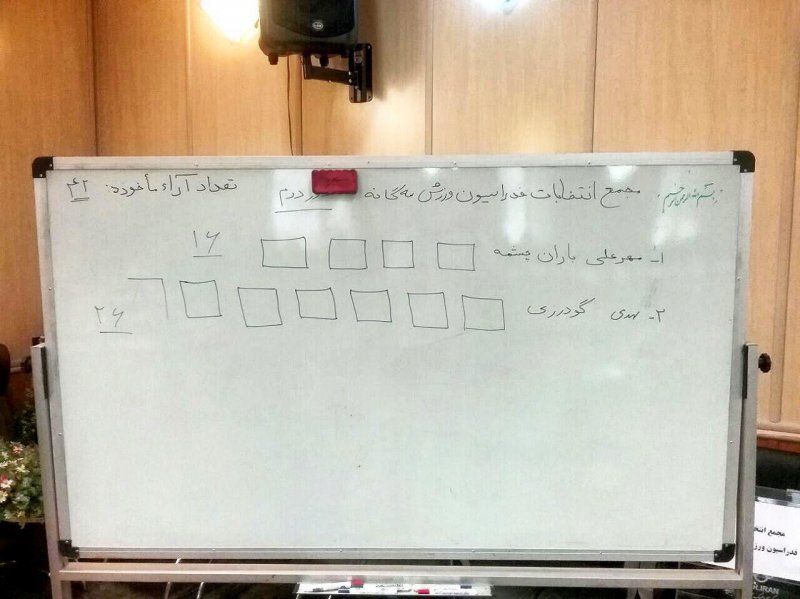 بسم الله الرحمن الرحیم
مجمع انتخابات فدراسیون ورزش سه گانه دور دوم تعداد آراء مأخوذه: ۴۲
۱- مهرعلی باران چشمه ۱۶
۲- مهدی گودرزی ۲۶
مجمع انتخ
فدراسیون ورز